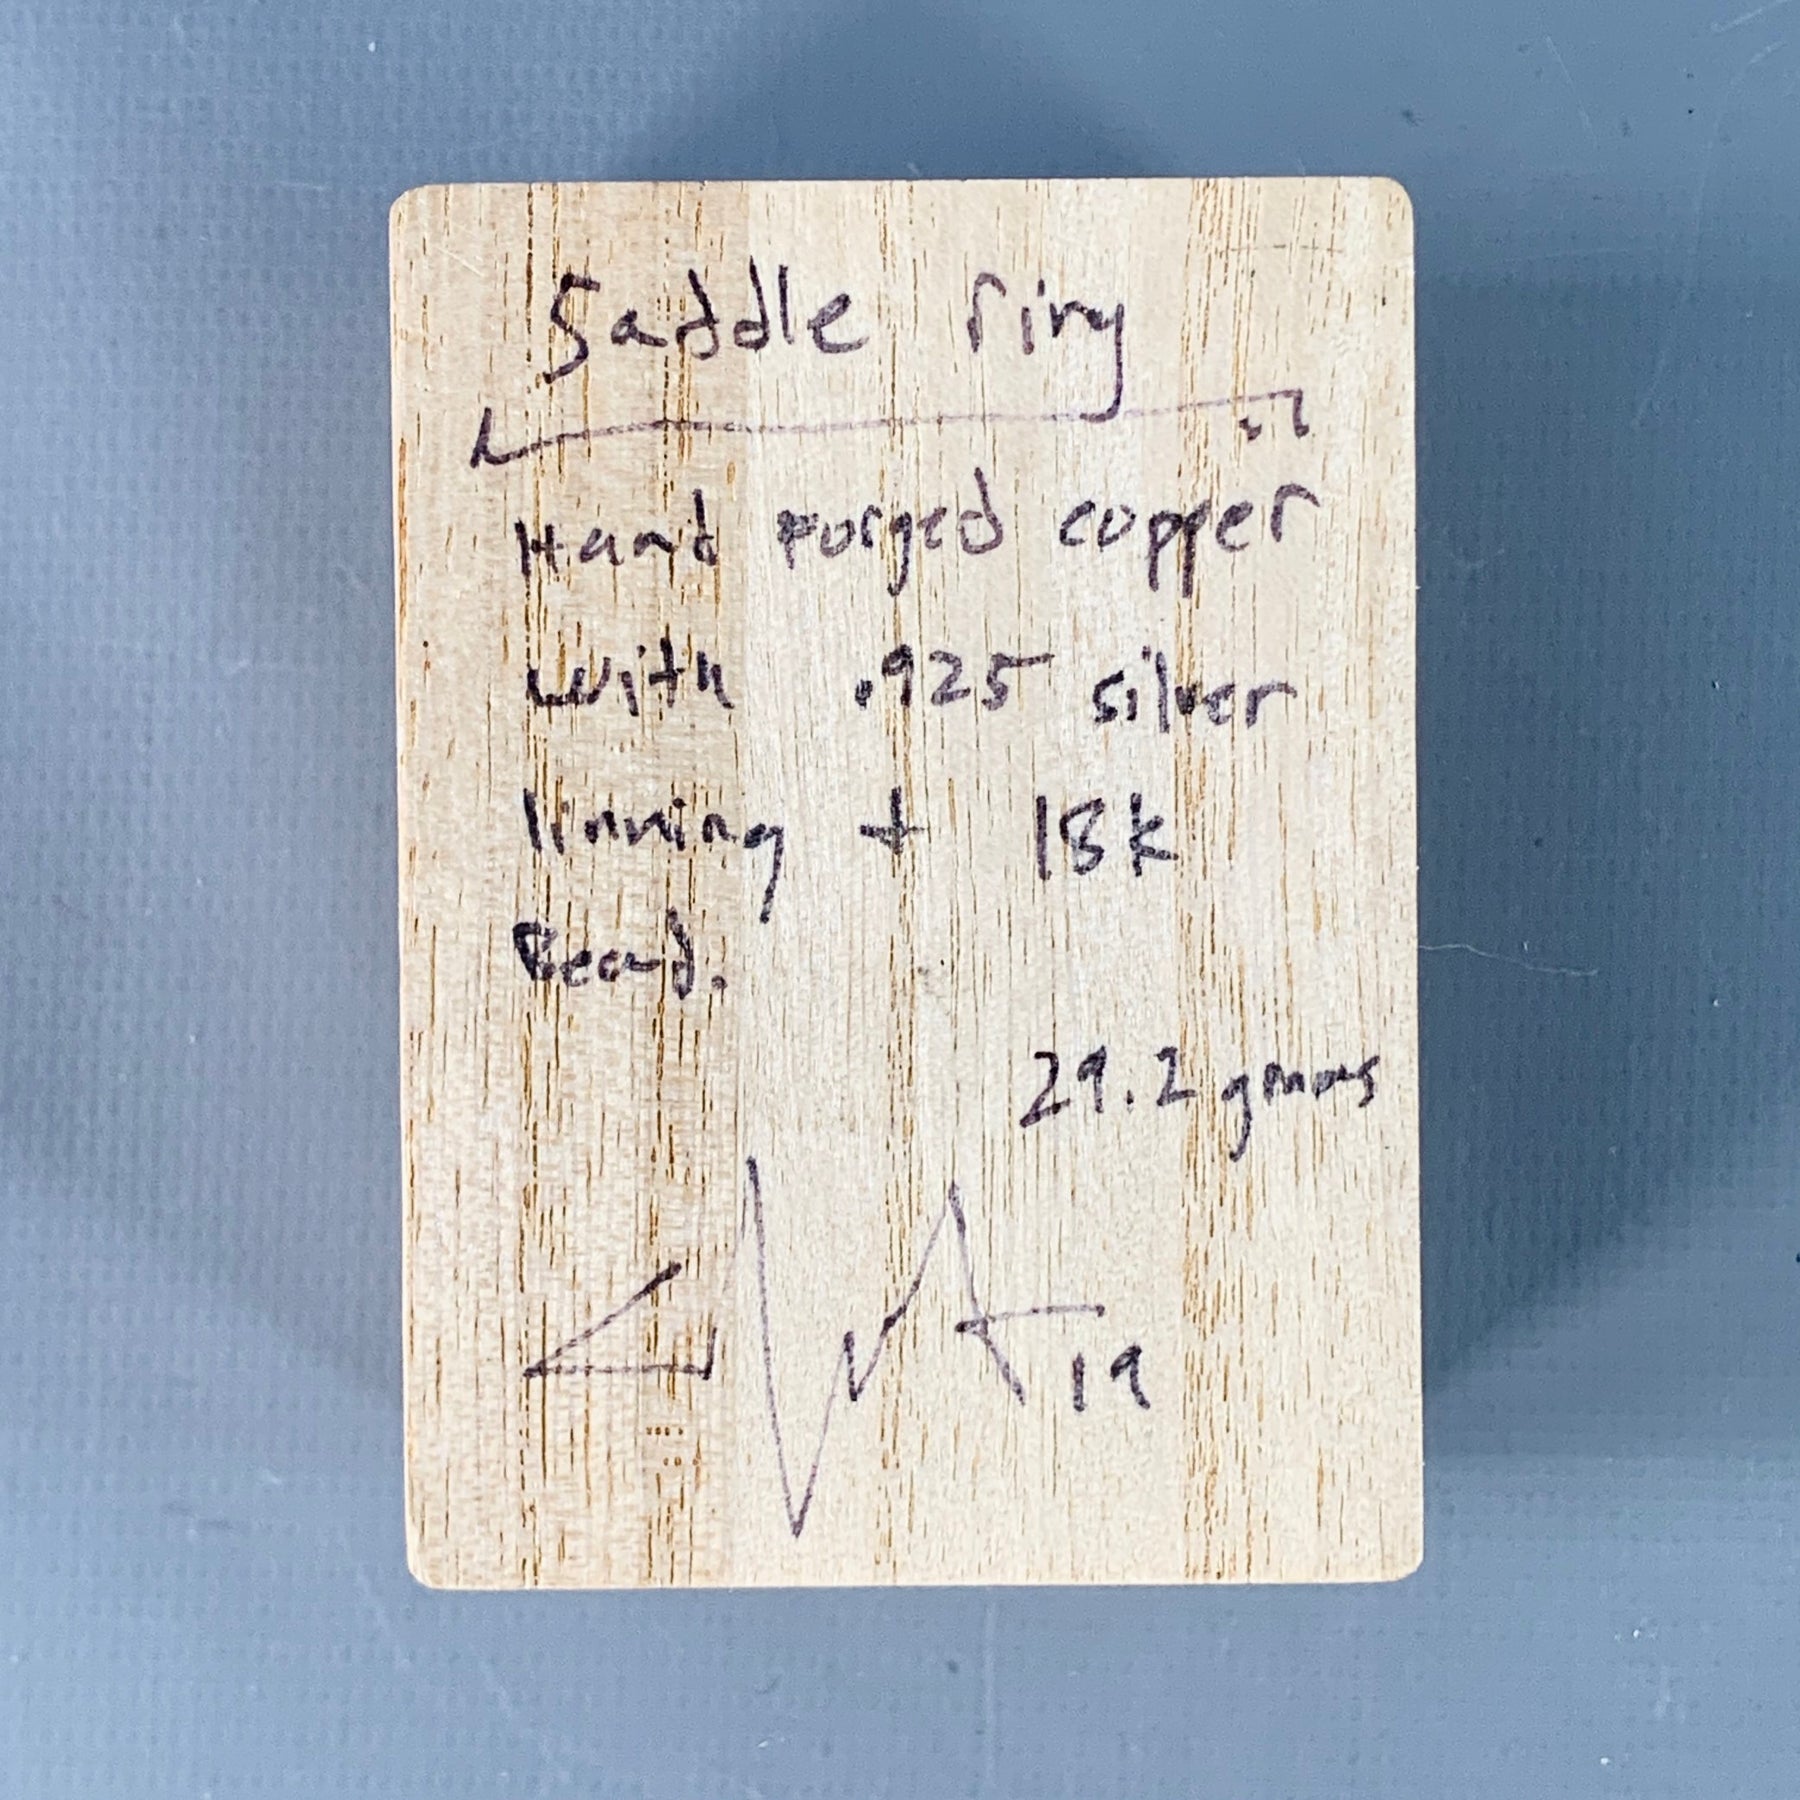 Saddle ring
Hand Forged copper
with .925 silver
linning + 18k
Bead.
29.2 grams
19